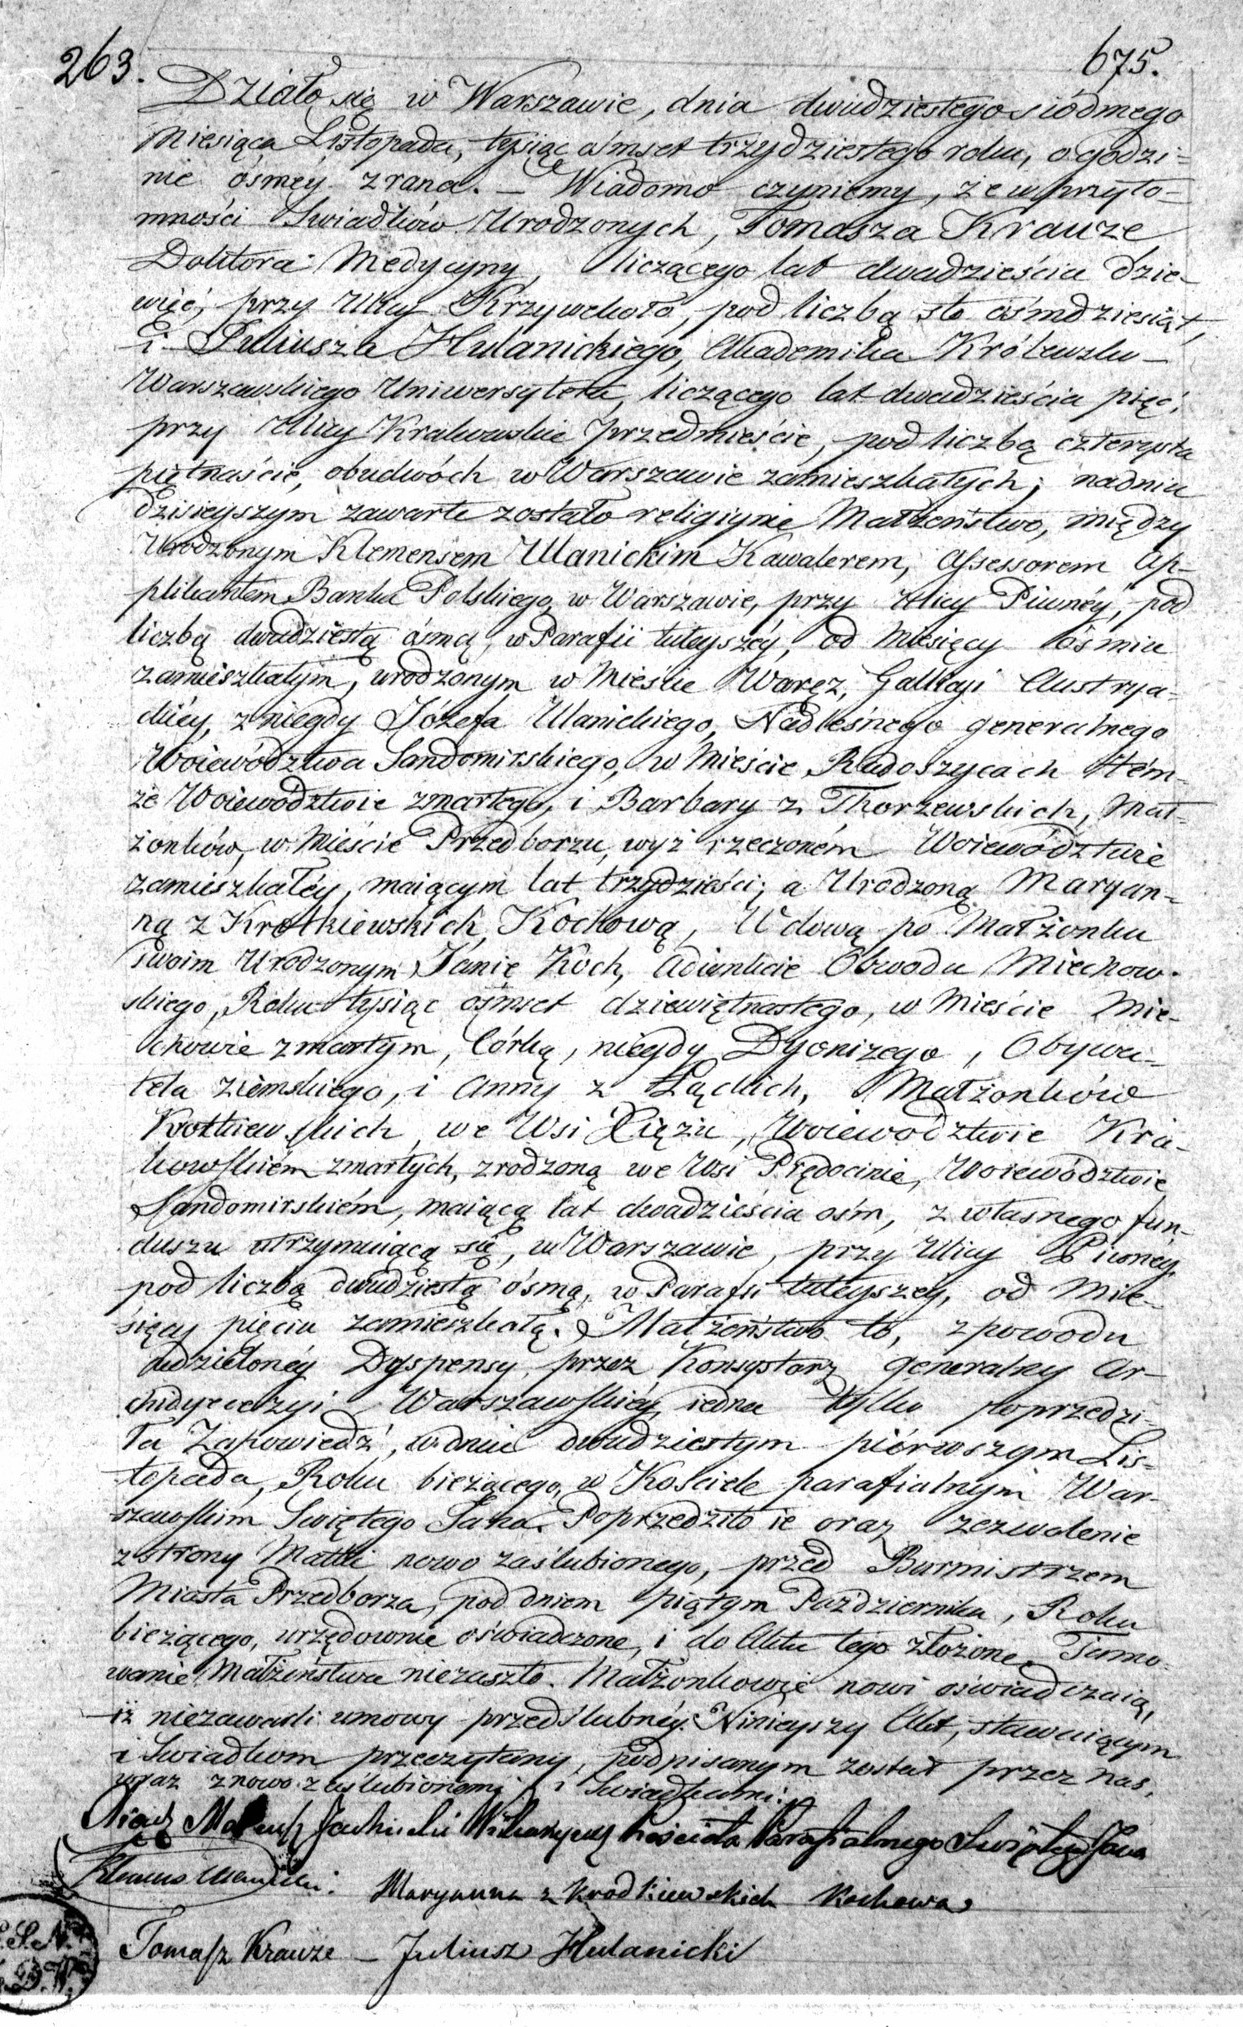 263.
675.
Działo się w Warszawie, dnia dwudziestego siódmego
Miesiąca Listopada, tysiąc ośmset trzydziestego roku, o godzi=
nie ósmey z rana. — Wiadomo czyniemy, że w przyto=
mności Swiadków Urodzonych, Tomasza Krauze
Doktora Medycyny, liczącego lat dwadzieścia dzie=
więć, przy Ulicy Krzywekoło, pod liczbą sto ośmdziesiąt,
i Juliusza Hulanickiego, Akademika Królewsko—
Warszawskiego Uniwersytetu, liczącego lat dwadzieścia pięć,
przy Ulicy Krakowskie Przedmieście, pod liczbą czterysta
piętnaście, obudwóch w Warszawie zamieszkałych; na dniu
dzisieyszym zawarte zostało religiyne Małżeństwo, między
Urodzonym Klemensem Ulanickim Kawalerem, Assessorem Ap=
plikantem Banku Polskiego, w Warszawie, przy Ulicy Piwnéy, pod
liczbą dwudziestą ósmą, w Parafii tuteyszéy, od Miesięcy ośmiu
zamieszkałym, urodzonym w Mieście Waręz, Gallicyi Austrya=
ckiéy, z niegdy Józefa Ulanickiego, Nadleśnego generalnego
Woiewództwa Sandomirskiego, w Mieście Radoszycach tém=
że Woiewództwie zmarłego, i Barbary z Thorzewskich, Mał=
żonków, w Mieście Przedborzu, wyż rzeczoném Woiewództwie
zamieszkałéy, maiącym lat trzydzieści; a Urodzoną Maryan=
ną z Krotkiewskich Kochową, Wdową po Małżonku
swoim Urodzonym Janie Koch, Adiunkcie Obwodu Miechow=
skiego, Roku tysiąc ośmset dziewiętnastego, w Mieście Mie=
chowie zmarłym, Córką, niegdy Dyonizego, Obywa=
tela ziemskiego, i Anny z Łąckich, Małżonków
Krotkiewskich, we Wsi Xiężu, Woiewództwie Kra=
kowskiém zmarłych, zrodzoną we Wsi Prędocinie, Woiewództwie
Sandomirskiém, maiącą lat dwadzieścia ośm, z własnego fun=
duszu utrzymuiącą się, w Warszawie, przy Ulicy Piwney,
pod liczbą dwudziestą ósmą, w Parafii tuteyszey, od Mie=
sięcy pięciu zamieszkałą. Małżeństwo to, z powodu
udzieloney Dyspensy przez Konsystorz generalny Ar=
chidyecezyi Warszawskiéy, iedna tylko poprzedzi=
ła Zapowiedź, w dniu dwudziestym piérwszym Lis=
topada, Roku bieżącego, w Kościele parafialnym War=
szawskim Swiętego Jana. Poprzedziło ie oraz zezwolenie
z strony Matki nowo zaślubionego, przed Burmistrzem
Miasta Przedborza, pod dniem piątym Października, Roku
bieżącego, urzędownie oświadczone, i do Aktu tego złożone. Tamo=
wanie Małżeństwa niezaszło. Małżonkowie nowi oświadczaią,
iż niezawarli umowy przedślubnéy. Ninieyszy Akt, stawaiącym
i Swiadkom przeczytany, podpisanym został przez nas,
wraz z nowo zaślubionemi i Swiadkami.
Xiądz Mateusz Wikaryusz Kościoła Parafialnego Swiętego Jana
Klemens Ulanicki.
Maryanna z Krodkiewskich Kochowa
Tomasz Krauze — Juliusz Hulanicki